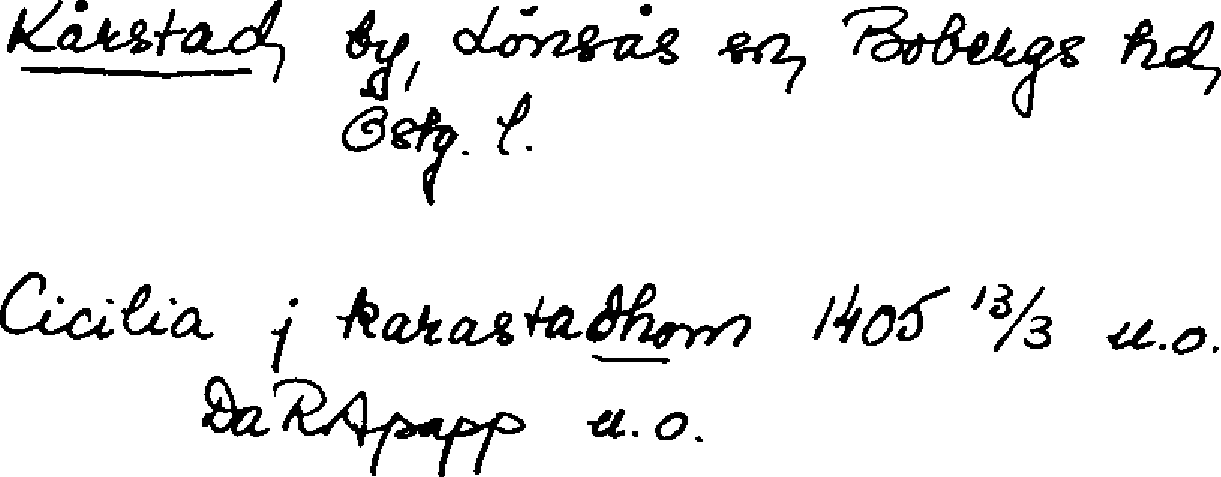 Kårstad, by, Lönsås sn, Bobergs hd,
Östg. l.
Cicilia j karastadhom 1405 13/3 u.o.
Da RApapp u.o.